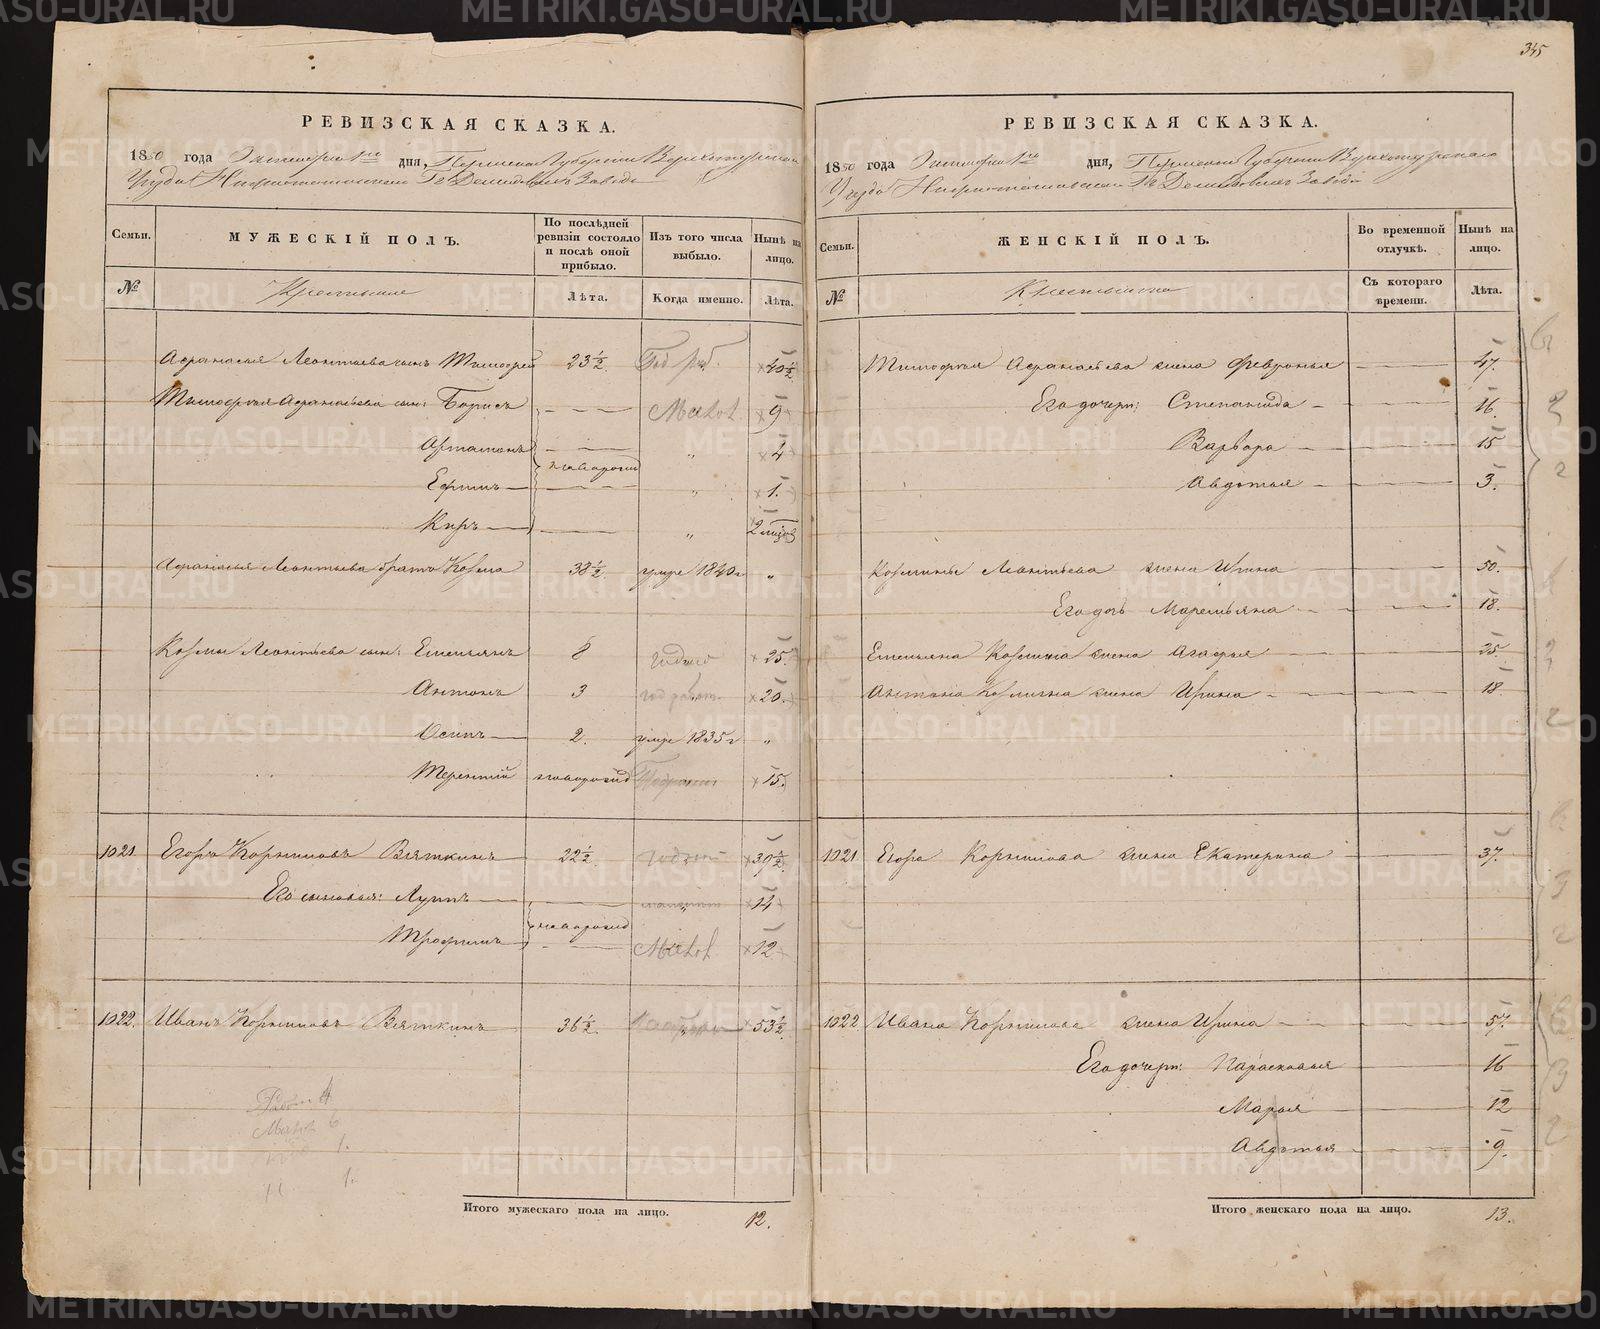 345
РЕВИЗСКАЯ СКАЗКА.
1850 года Октября 1го дня, Пермской Губернии Верхотурскаго
Уезда Нижнетагильскаго Гг Демидовыхъ Завода
Семьи.
МУЖЕСКІЙ ПОЛЪ.
По послѣдней ревизіи состояло и послѣ оной прибыло.
Изъ того числа выбыло.
Нынѣ на лицо.
№
Крестьяне
Лѣта.
Когда именно.
Лѣта.
Афанасья Леонтьева сынъ Тимофей 23½ 40½
Тимофея Афанасьева сын: Борисъ Малол 9
Артамонъ „ 4
новорожд
Ефимъ „ 1.
Киръ „ 2 месяцов
Афанасья Леонтьева братъ Козма 38½ умре 1840 г „
Козмы Леонтьева сын: Емельянъ 8 годный 25.
Антонъ 3 год работ. 20.
Осипъ 2. умре 1835 г „
Терентий новорожд 15.
1021 Егоръ Корниловъ Вяткинъ 22½ годный 39½
Его сыновья: Лупъ 14
новорожд
Трофимъ Малол 12
1022. Иванъ Корниловъ Вяткинъ 36½ 53½
Малол 6
1.
1.
Итого мужескаго пола на лицо. 12.
РЕВИЗСКАЯ СКАЗКА.
1850 года Октября 1го дня, Пермской Губернии Верхотурскаго
Уезда Нижнетагильскаго Гг Демидовыхъ Завода
Семьи.
ЖЕНСКІЙ ПОЛЪ.
Во временной отлучкѣ.
Нынѣ на лицо.
№
Съ котораго времени.
Лѣта.
Тимофея Афанасьева жена Февронья 47.
Его дочери: Степанида 16.
Варвара 15
Авдотья 3.
Козмины Леонтьева жена Ирина 50.
Его дочь Маремьяна 18.
Емельяна Козмина жена Агафья 25
Антона Козмина жена Ирина 18.
1021 Егора Корнилова жена Екатерина 37.
1022 Ивана Корнилова жена Ирина 57.
Его дочери: Парасковья 16
Марья 12
Авдотья 9.
Итого женскаго пола на лицо. 13.
METRIKI.GASO-URAL.RU